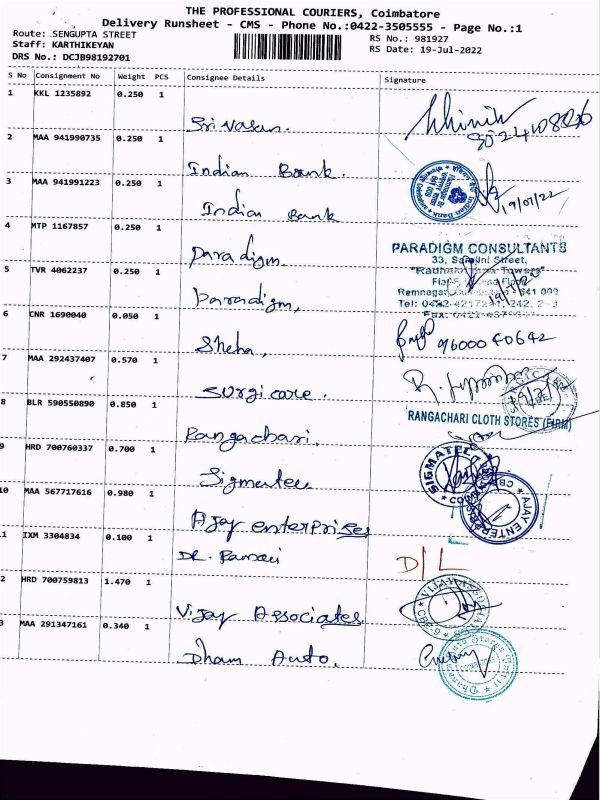 THE PROFESSIONAL COURIERS, Coimbatore
Delivery Runsheet - CMS - Phone No.:0422-3505555 - Page No.:1
Route: SENGUPTA STREET
RS No.: 981927
Staff: KARTHIKEYAN
RS Date: 19-Jul-2022
DRS No.: DCJB98192701
S No Consignment No Weight PCS Consignee Details Signature
1 KKL 1235892 0.250 1
Srivasan.
2 MAA 941990735 0.250 1
Indian Bank.
3 MAA 941991223 0.250 1
19/07/22
Indian Bank
4 MTP 1167857 0.250 1
Paradigm.
PARADIGM CONSULTANTS
33, Sarojini Street,
5 TVR 4062237 0.250 1
Paradigm,
6 CNR 1690040 0.050 1
Sneha,
96000 40642
7 MAA 292437407 0.570 1
Surgicare.
8 BLR 590550890 0.850 1
RANGACHARI CLOTH STORES (FIRM)
Rangachari.
9 HRD 700760337 0.700 1
Sigmatec
SIGMATEC
10 MAA 567717616 0.980 1
Ajay enterprises
AJAY ENTERPRISES
1 IXM 3304834 0.100 1
DR. Ramani
D/L
2 HRD 700759813 1.470 1
Vijay Associates.
3 MAA 291347161 0.340 1
Dham Auto.